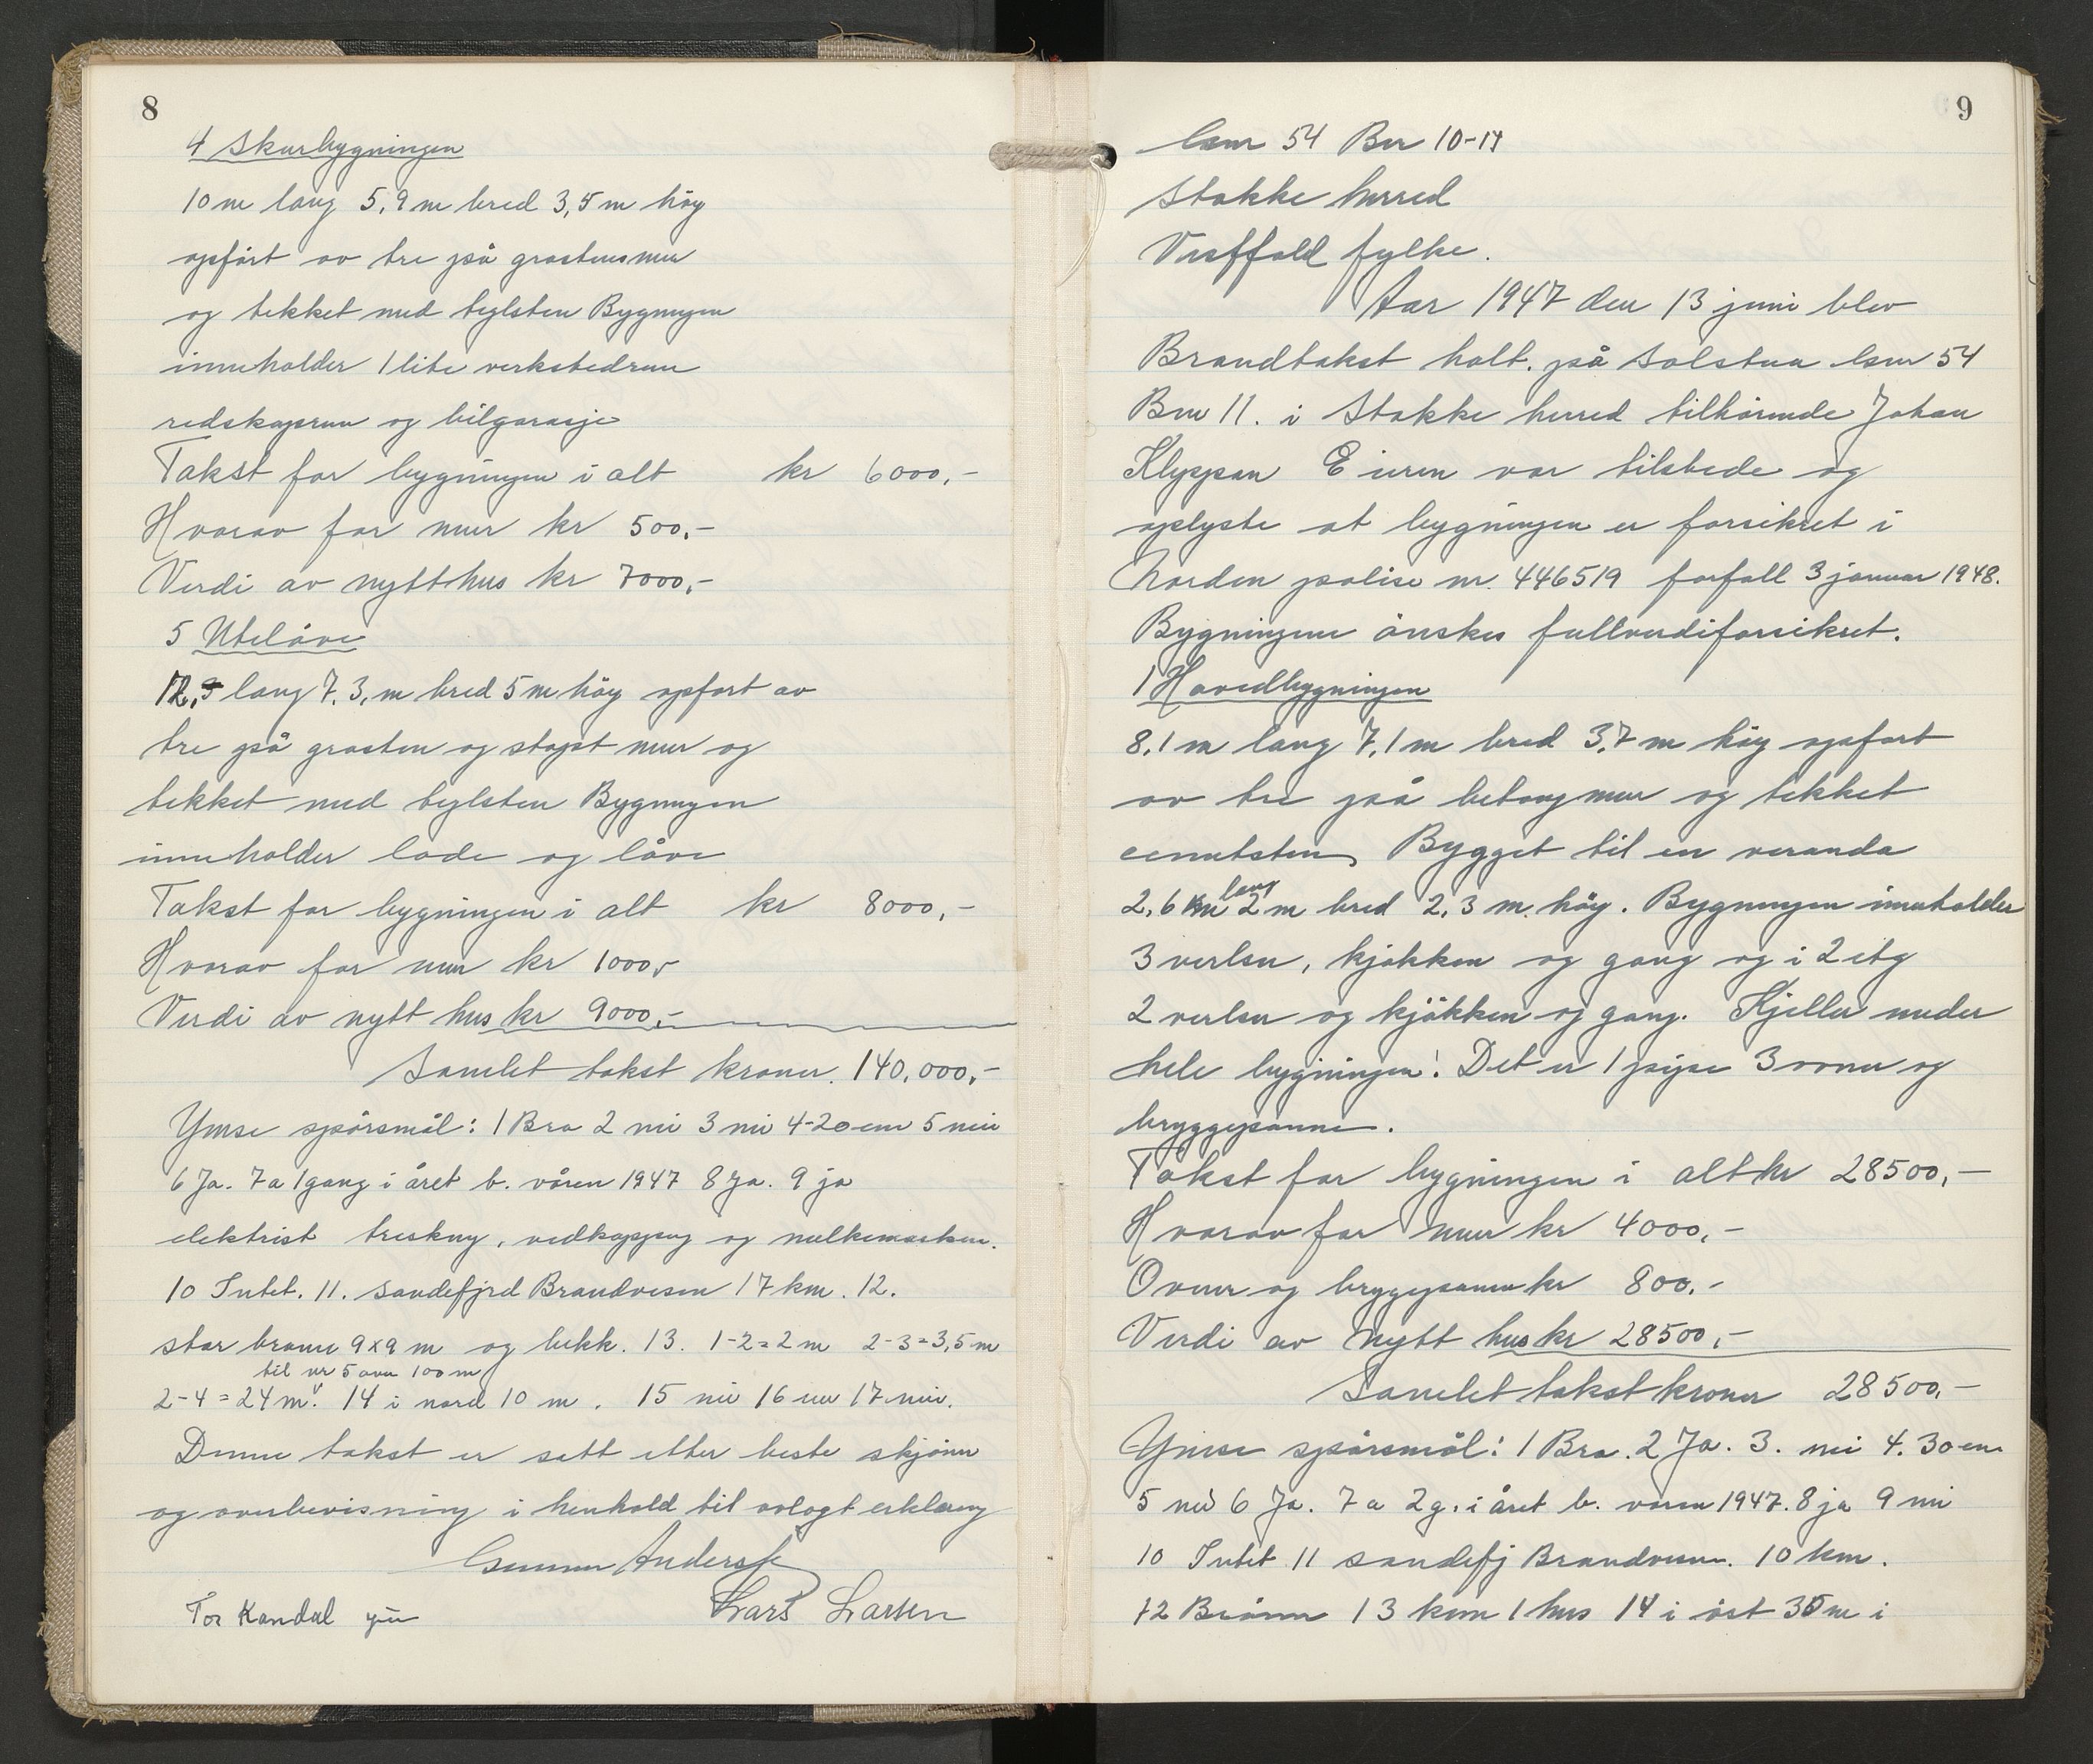 8
4 Skurbygningen
10 m lang 5,9 m bred 3,5 m høy
opført av tre på grastensmur
og tekket med teglsten Bygningen
inneholder 1 lite verkstedrum
redskapsrum og bilgarasje
Takst for bygningen i alt kr 6000,-
Hvorav for mur kr 500,-
Verdi av nytt hus kr 7000,-
5 Uteløve
12,5 lang 7,3, m bred 5 m høy opført av
tre på grasten og støpt mur og
tekket med teglsten Bygningen
inneholder lade og låve
Takst for bygningen i alt kr 8000,-
Hvorav for mur kr 1000,-
Verdi av nytt hus kr 9000,-
Samlet takst kroner. 140.000,-
Ymse spørsmål: 1 Bra 2 nei 3 nei 4-20 cm 5 nei
6 Ja. 7a 1 gang i året b. våren 1947 8 Ja. 9 ja
elektrist treskng, vedkapping og melkemaskin.
10 Intet. 11. Sandefjrd Brandvesen 17 km. 12.
stor brønn 9x9 m og bekk. 13. 1-2=2 m 2-3=3,5 m
til nr 5 over 100 m
2-4=24 m. 14 i nord 10 m. 15 nei 16 nei 17 nei.
Denne takst er satt etter beste skjønn
og overbevisning i henhold til avlagt erklæring
Gunnar Andersen
Tor Kandal Lars Larsen
9
Gnr 54 Bnr 10-11
Stokke herred
Vestfold fylke.
Aar 1947 den 13 juni blev
Brandtakst holt. på Solstua Gnr 54
Bnr 11. i Stokke herred tilhørende Johan
Kleppan Eieren var tilstede og
oplyste at bygningen er forsikret i
Norden polise nr. 446519 forfall 3 januar 1948.
Bygningene ønskes fullverdiforsikret.
1 Hovedbygningen
8,1 m lang 7,1 m bred 3,7 m høy opført
av tre på betongmur og tekket
cemetsten, Bygget til en veranda
lang
2,6 m 2 m bred 2,3 m. høy. Bygningen inneholder
3 verlser, kjøkken og gang og i 2 etg
2 verlser og kjøkken og gang. Kjeller under
hele bygningen! Det er 1 pipe 3 ovner og
bryggepanne.
Takst for bygningen i alt kr 28500,-
Hvorav for mur kr 4000,-
Ovner og bryggepanne kr 800.-
Verdi av nytt hus kr 28500,-
Samlet takst kroner 28500,-
Ymse spørsmål: 1 Bra. 2 Ja. 3. nei 4. 30 cm
5 nei 6 Ja. 7 a 2 g. i året b. våren 1947. 8 ja 9 nei
10 Intet 11 Sandefj Brandvesen. 10 km.
12 Brønn 13 kun 1 hus 14 i øst 35 m i